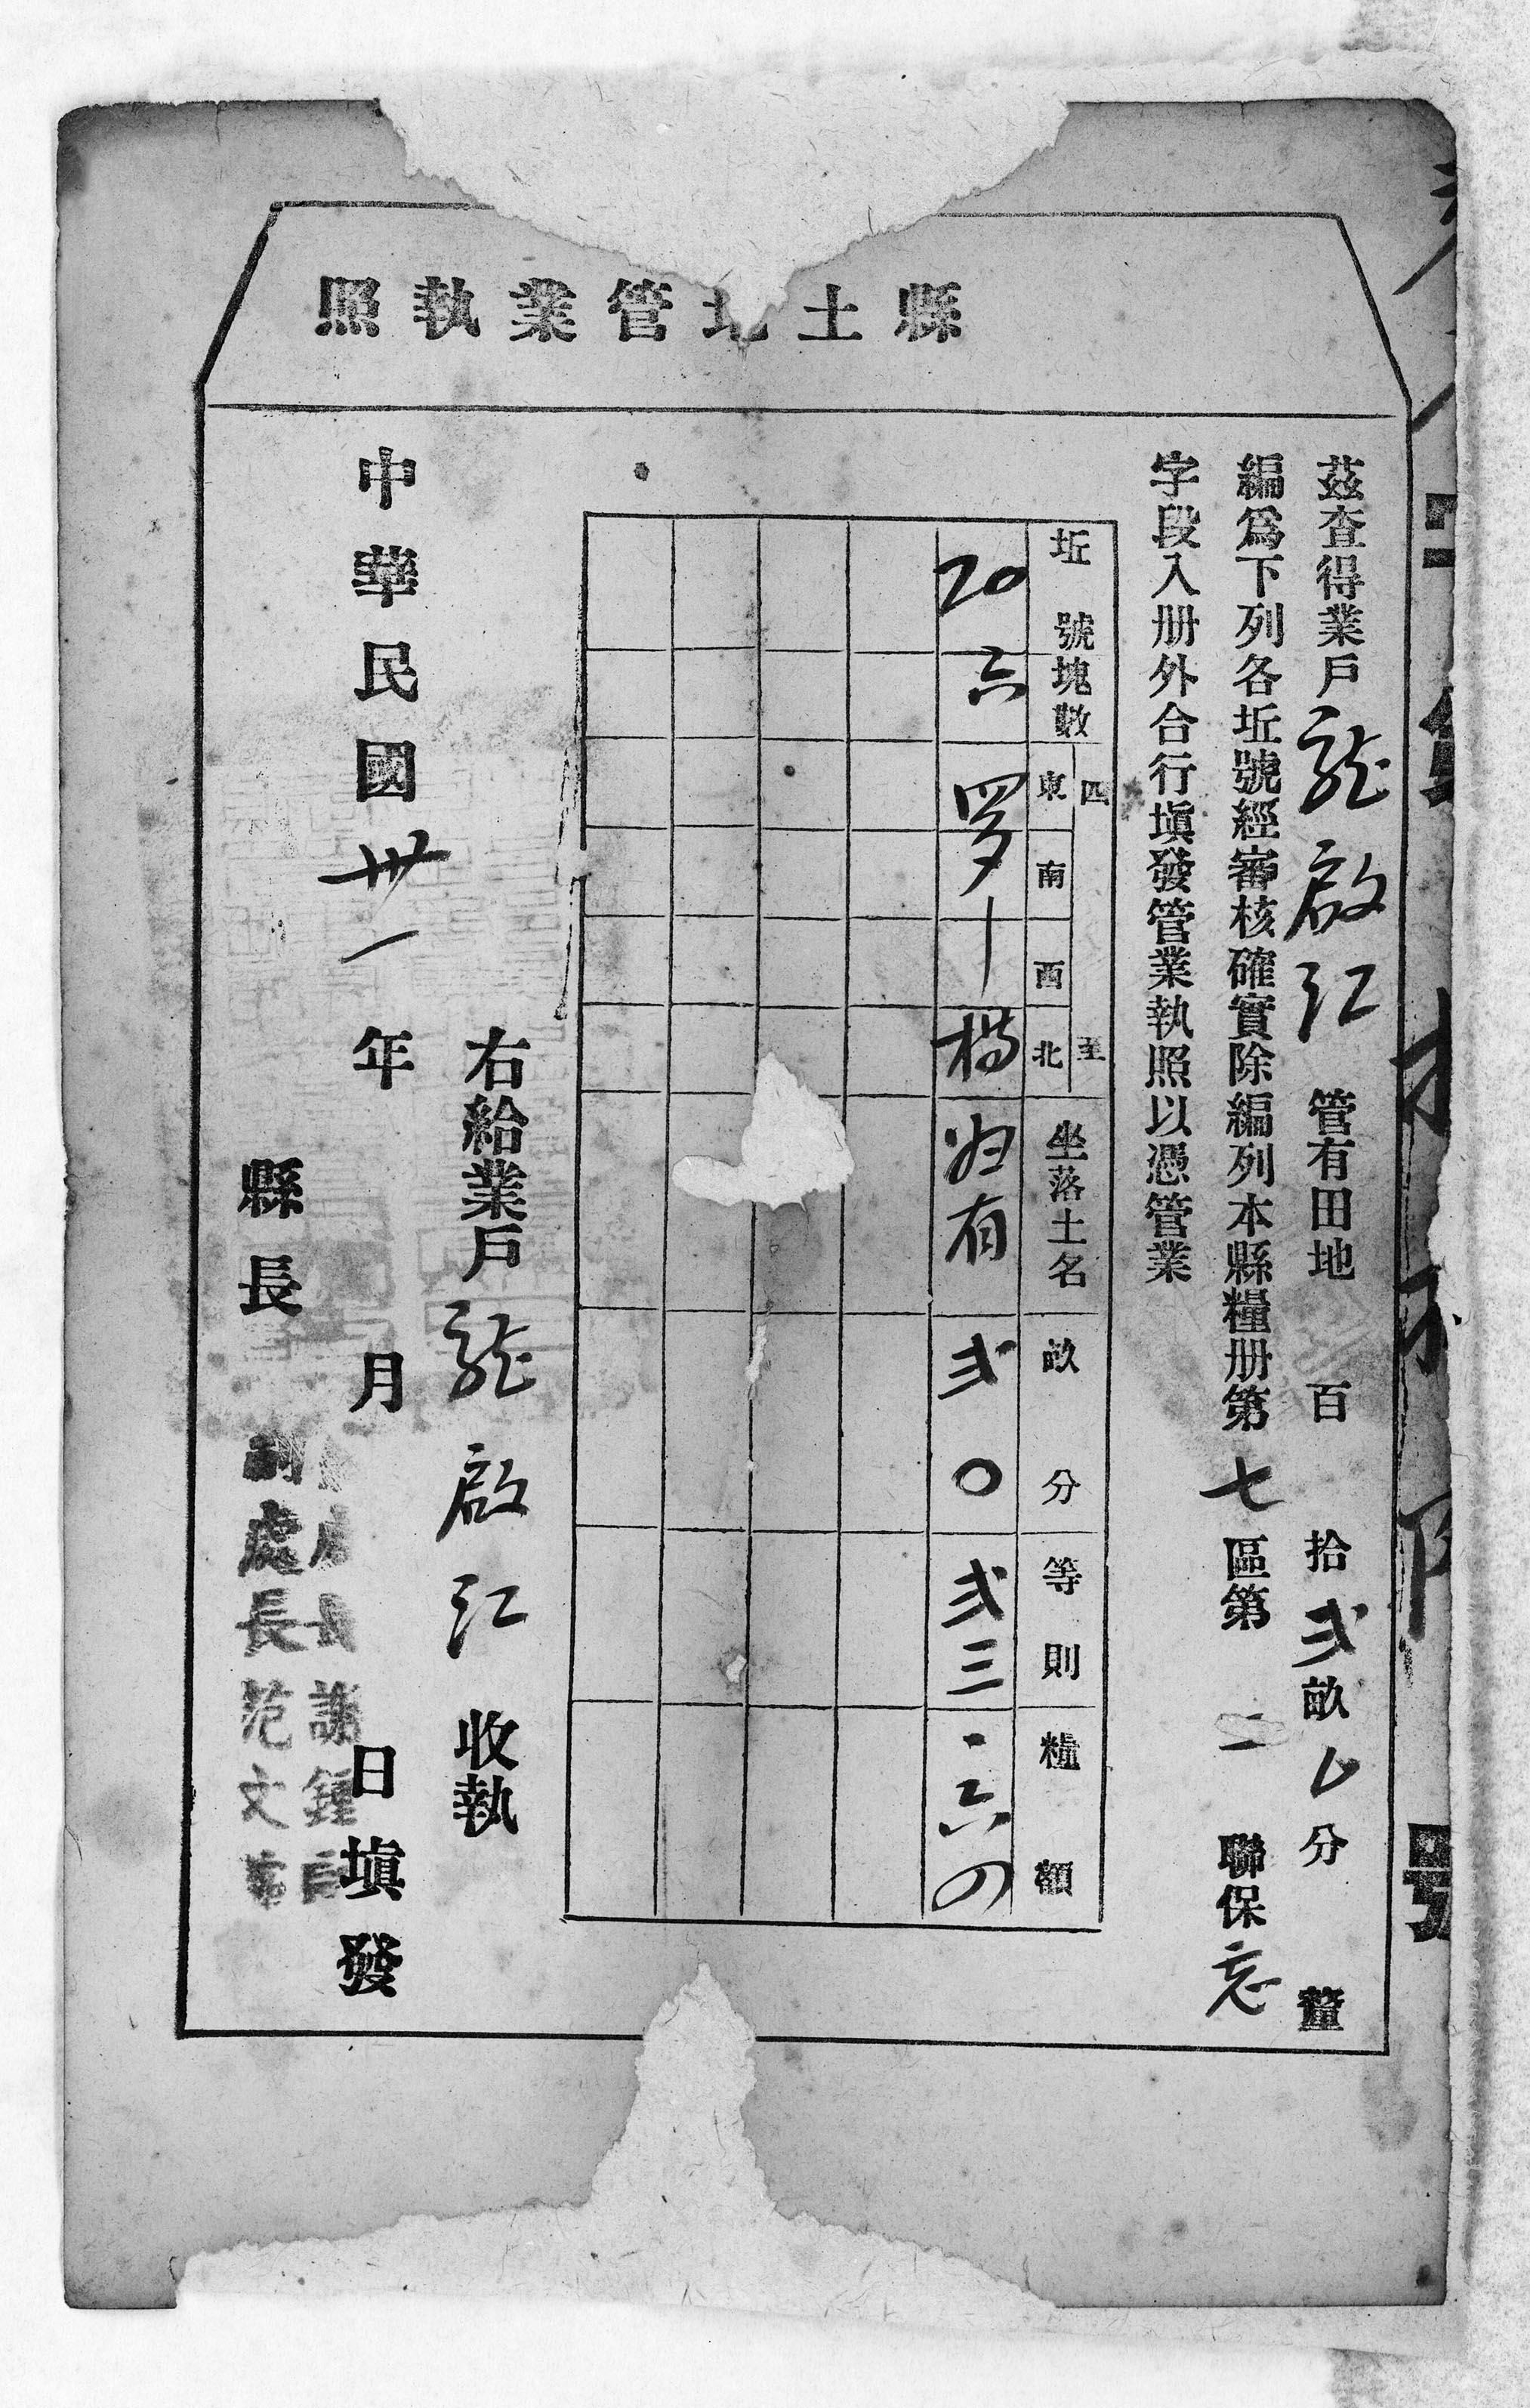 縣土地管業執照
茲查得業戶龍啟江管有田地百拾貳畝分釐
編爲下列各坵號經審核確實除編列本縣糧册第七區第二聯保忘
字段入册外合行塡發管業執照以憑管業
坵號 塊數 四至 東 南 西 北 坐落土名 畝分 等則 糧額
20 六 罗 丨 楊 有 弍〇 弍三
右給業戶龍啟江收執
中華民國卅一年月日塡發
縣長
處長謝鍾
副處長范文
號